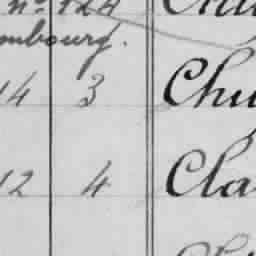 nº 124
mbourg.
14 3 Chu
12 4 Cla